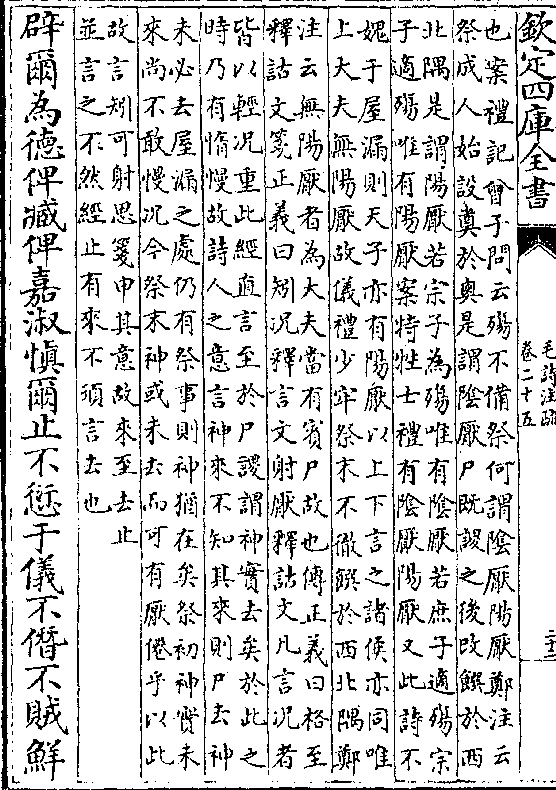 欽定四庫全書
毛詩注疏
卷二十五
也案禮記曾子問云殤不備祭何謂陰厭陽厭鄭注云
祭成人始設奠於奥是謂陰厭尸既謖之後改饌於西
北隅是謂陽厭若宗子為殤唯有陰厭若庶子適殤宗
子適殤唯有陽厭案特牲士禮有陰厭陽厭又此詩不
媿于屋漏則天子亦有陽厭以上下言之諸侯亦同唯
上大夫無陽厭故儀禮少牢祭末不徹饌於西北隅鄭
注云無陽厭者為大夫當有賓尸故也傳正義曰格至
釋詁文箋正義曰矧况釋言文射厭釋詁文凡言况者
皆以輕况重此經直言至於尸謖謂神實去矣於此之
時乃有惰慢故詩人之意言神來不知其來則尸去神
未必去屋漏之處仍有祭事則神猶在矣祭初神實未
來尚不敢慢况今祭末神或未去而可有厭倦乎以此
故言矧可射思箋申其意故來至去止
並言之不然經止有來不須言去也
辟爾為德俾臧俾嘉淑慎爾止不愆于儀不僭不賊鮮